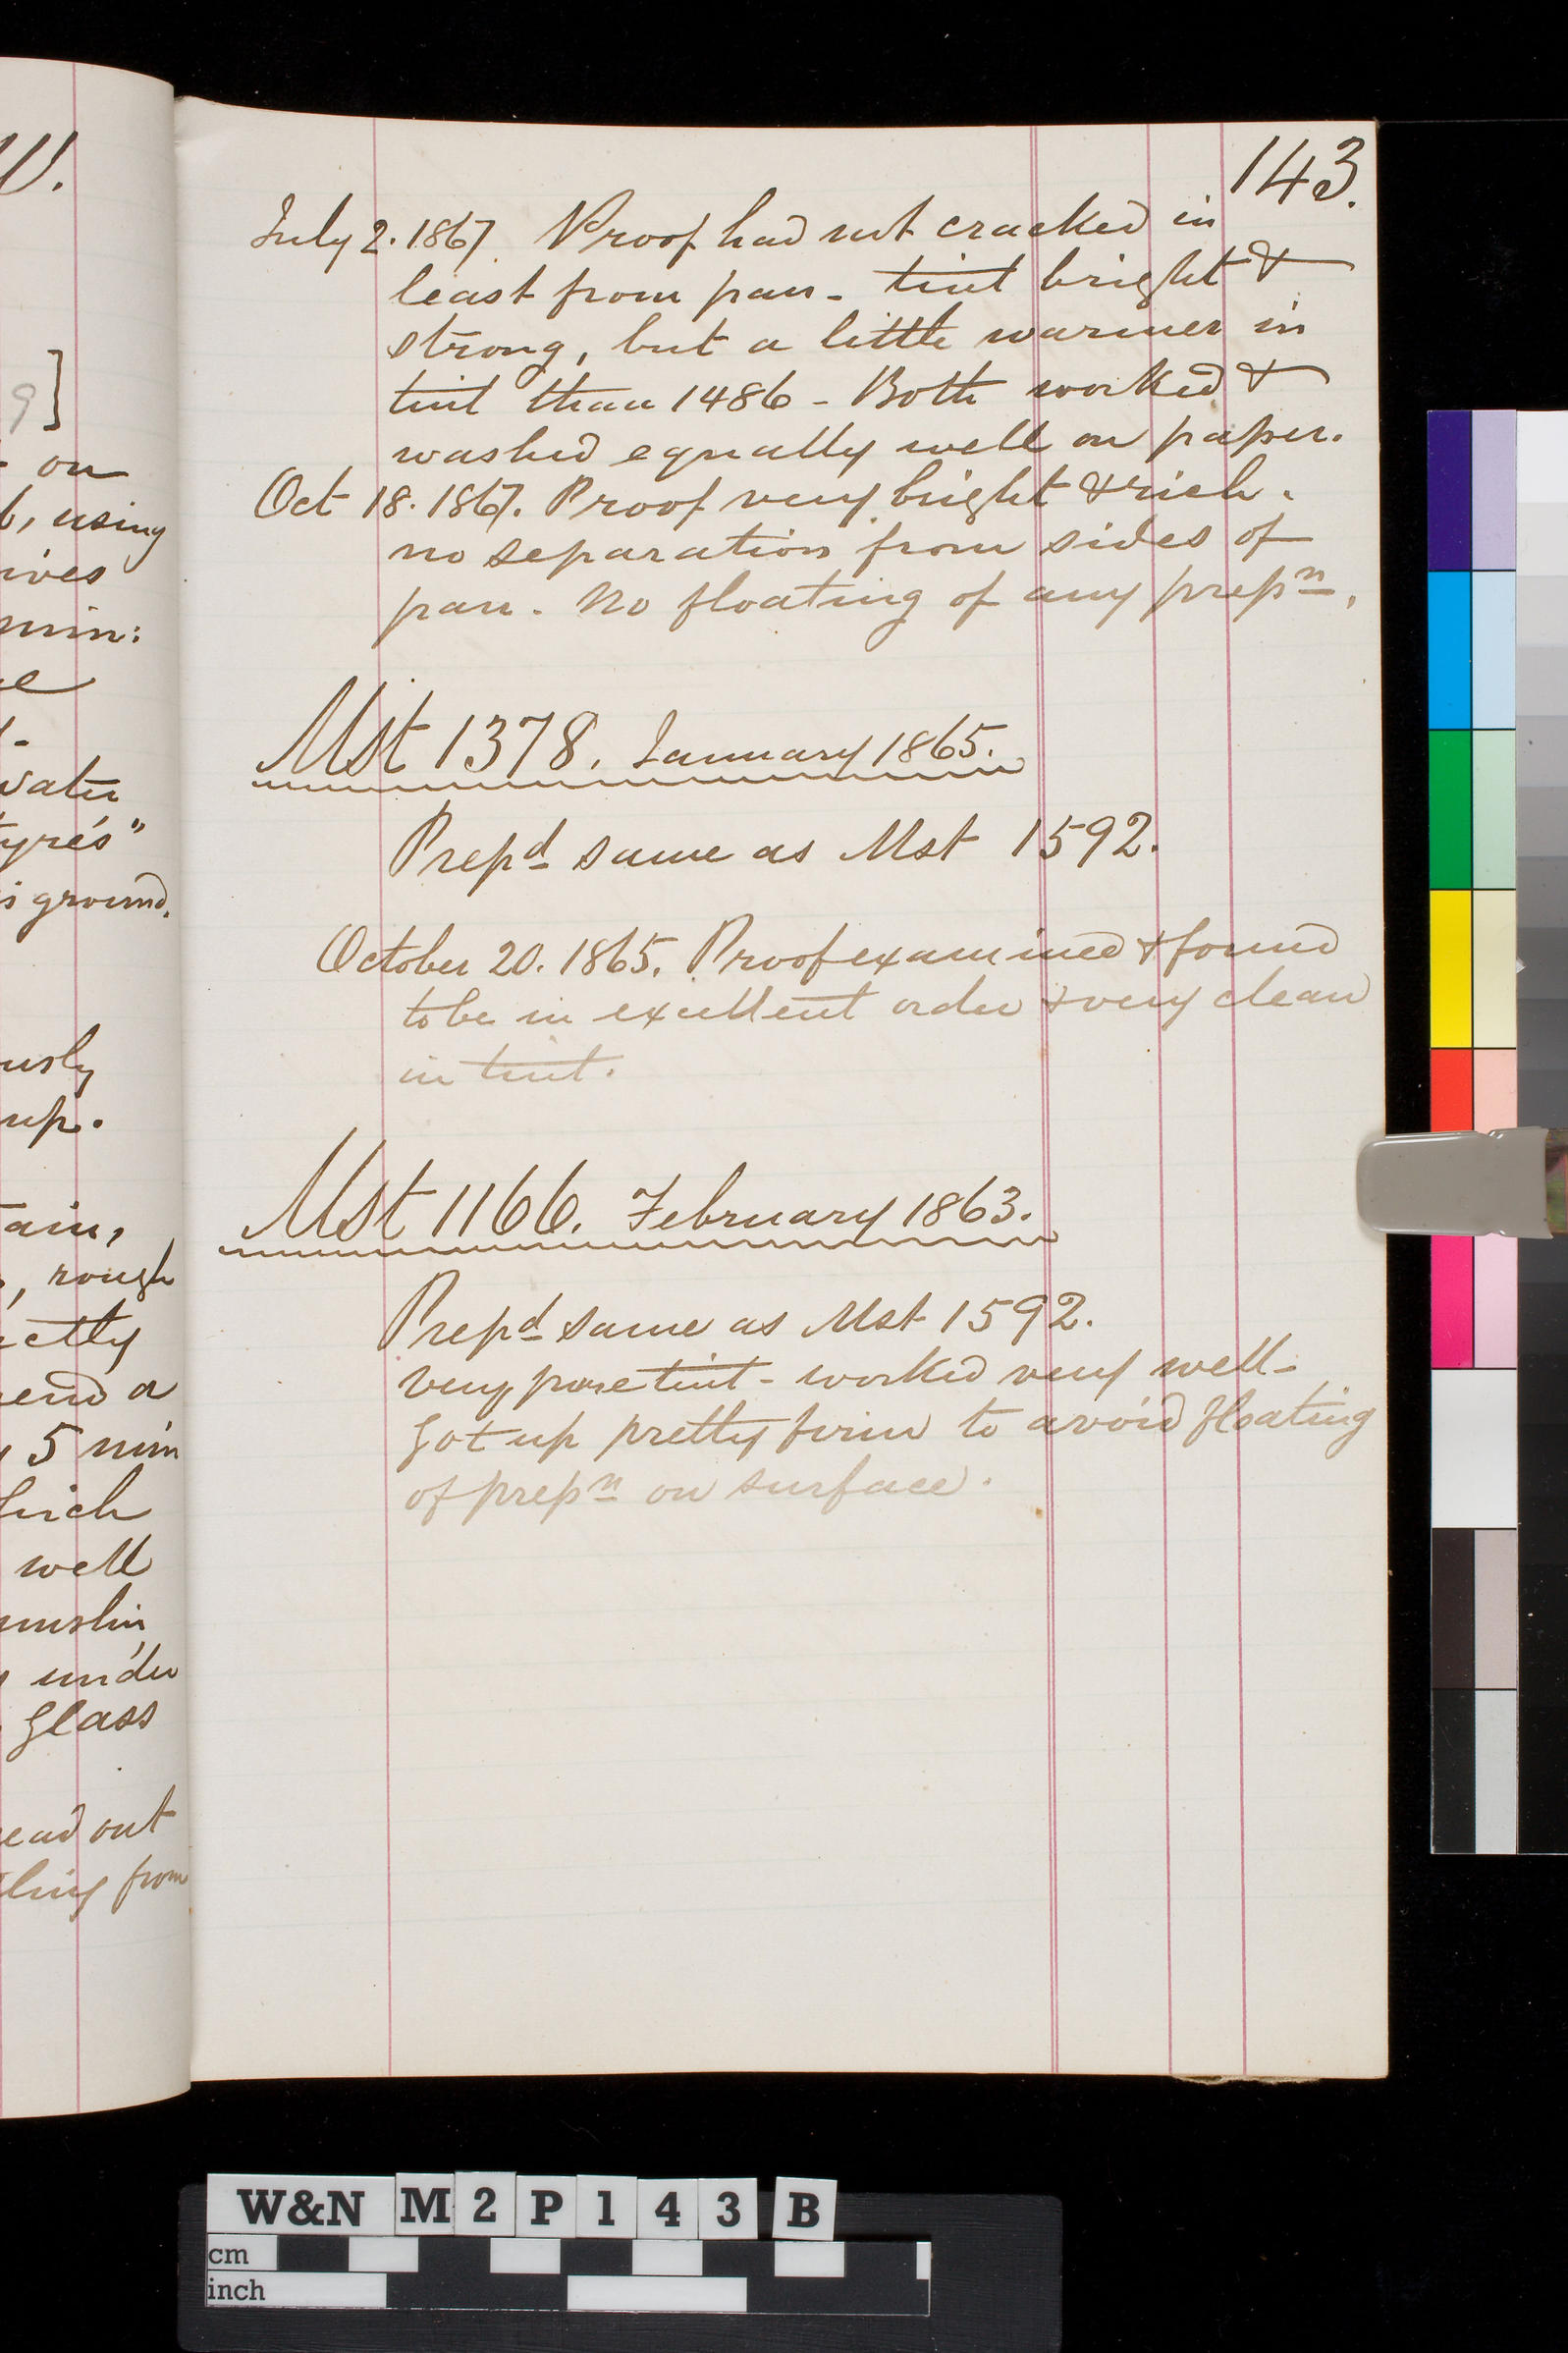 W.
9]
on
b, using
ives
min:
e
water
tyre's"
is ground.
usly
up.
tain,
, rough
ectly
end a
5 min
hich
well
muslin
under
glass
ead out
ling from
143.
July 2. 1867. Proof had not cracked in
least from pan - tint bright &
strong, but a little warmer in
tint than 1486 - Both worked &
washed equally well on paper.
Oct 18. 1867. Proof very bright & rich.
no separation from sides of
pan. No floating of any prepn.
Mst 1378. January 1865.
Prepd same as Mst 1592.
October 20. 1865. Proof examined & found
to be in excellent order & very clean
in tint.
Mst 1166. February 1863.
Prepd same as Mst 1592.
Very pure tint - worked very well -
Got up pretty firm to avoid floating
of prepn on surface.
W&N M2P143B
cm
inch